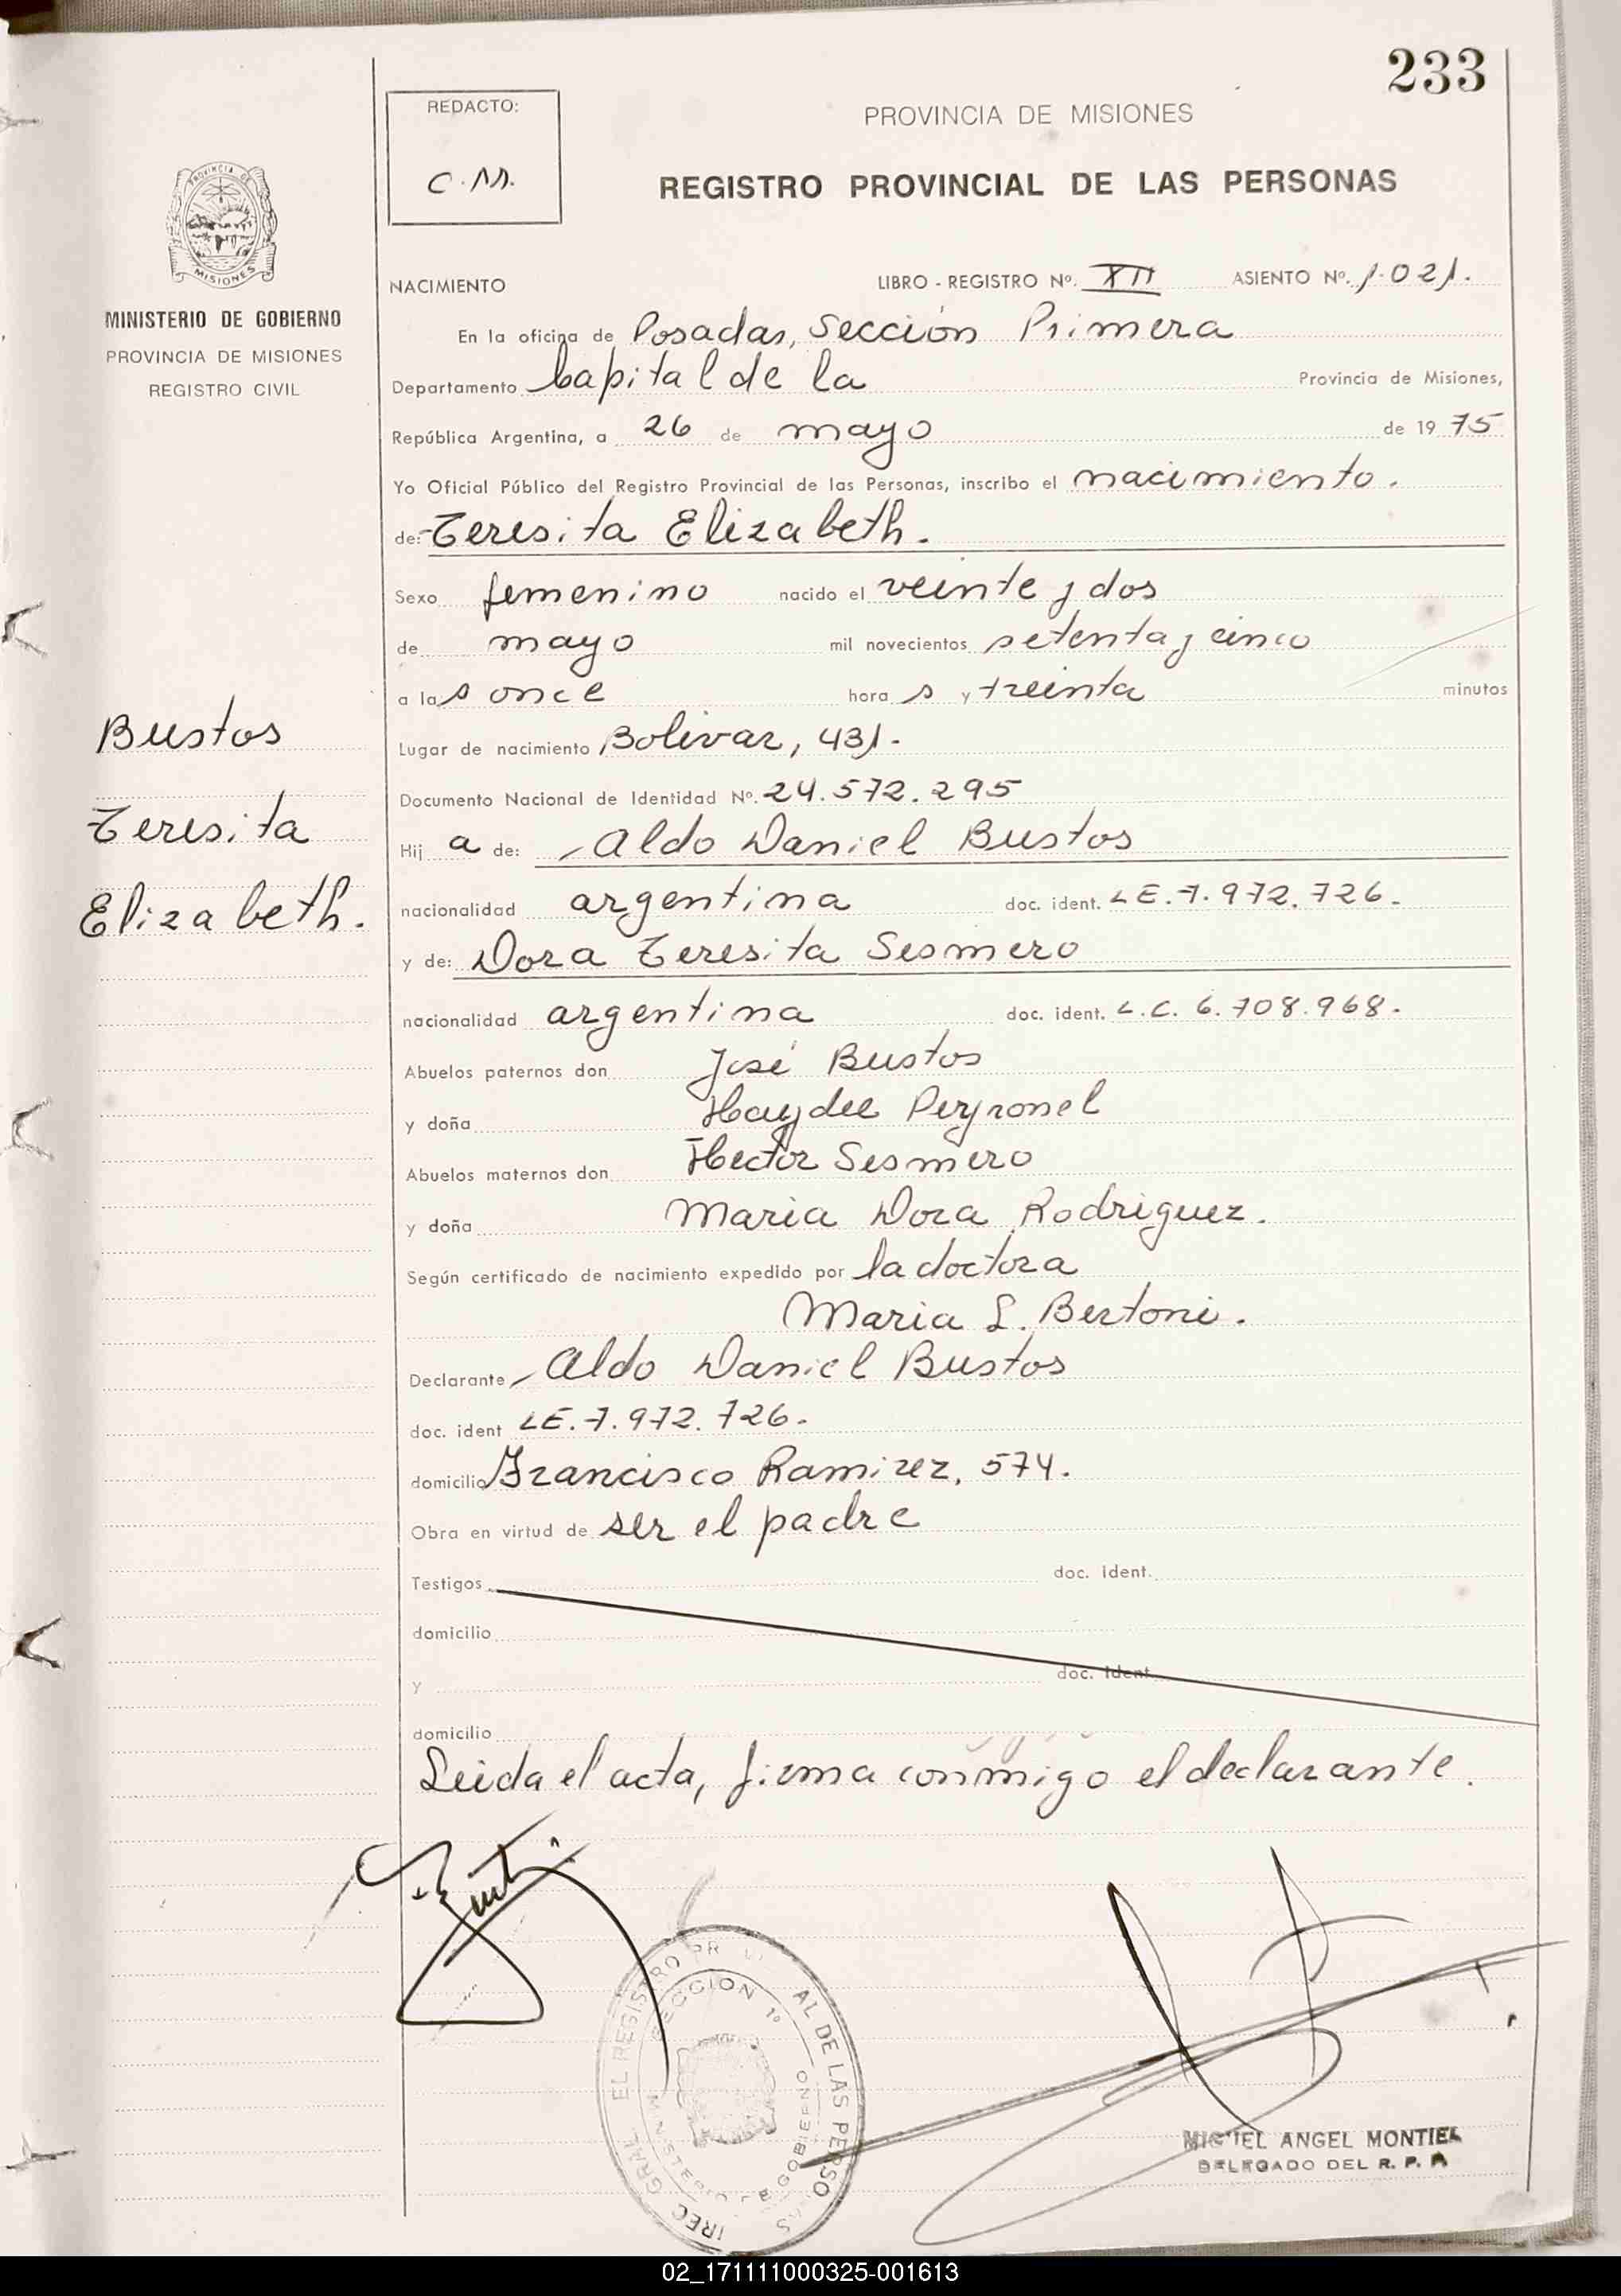 233
REDACTO:
C.M.
PROVINCIA DE MISIONES
REGISTRO PROVINCIAL DE LAS PERSONAS
PROVINCIA DE
MISIONES
MINISTERIO DE GOBIERNO
PROVINCIA DE MISIONES
REGISTRO CIVIL
Bustos
Teresita
Elizabeth.
NACIMIENTO LIBRO - REGISTRO Nº. XII ASIENTO Nº. 1.021.
En la oficina de Posadas, Sección Primera
Departamento Capital de la Provincia de Misiones,
República Argentina, a 26 de mayo de 1975
Yo Oficial Público del Registro Provincial de las Personas, inscribo el nacimiento.
de:- Teresita Elizabeth.
Sexo femenino nacido el veinte y dos
de mayo mil novecientos setenta y cinco
a las once horas y treinta minutos
Lugar de nacimiento Bolivar, 431.
Documento Nacional de Identidad Nº. 24.572.295
Hija de: Aldo Daniel Bustos
nacionalidad argentina doc. ident. LE.7.972.726.
y de: Dora Teresita Sesmero
nacionalidad argentina doc. ident. L.C. 6.708.968.
Abuelos paternos don José Bustos
y doña Haydee Peyronel
Abuelos maternos don Hector Sesmero
y doña Maria Dora Rodriguez.
Según certificado de nacimiento expedido por la doctora
Maria L. Bertoni.
Declarante Aldo Daniel Bustos
doc. ident LE.7.972.726.
domicilio Francisco Ramirez, 574.
Obra en virtud de ser el padre
Testigos doc. ident.
domicilio
y doc. ident.
domicilio
Leida el acta, firma conmigo el declarante.
SECCION 1º
MINISTERIO DE GOBIERNO
MIGUEL ANGEL MONTIEL
DELEGADO DEL R. P. P.
02_171111000325-001613